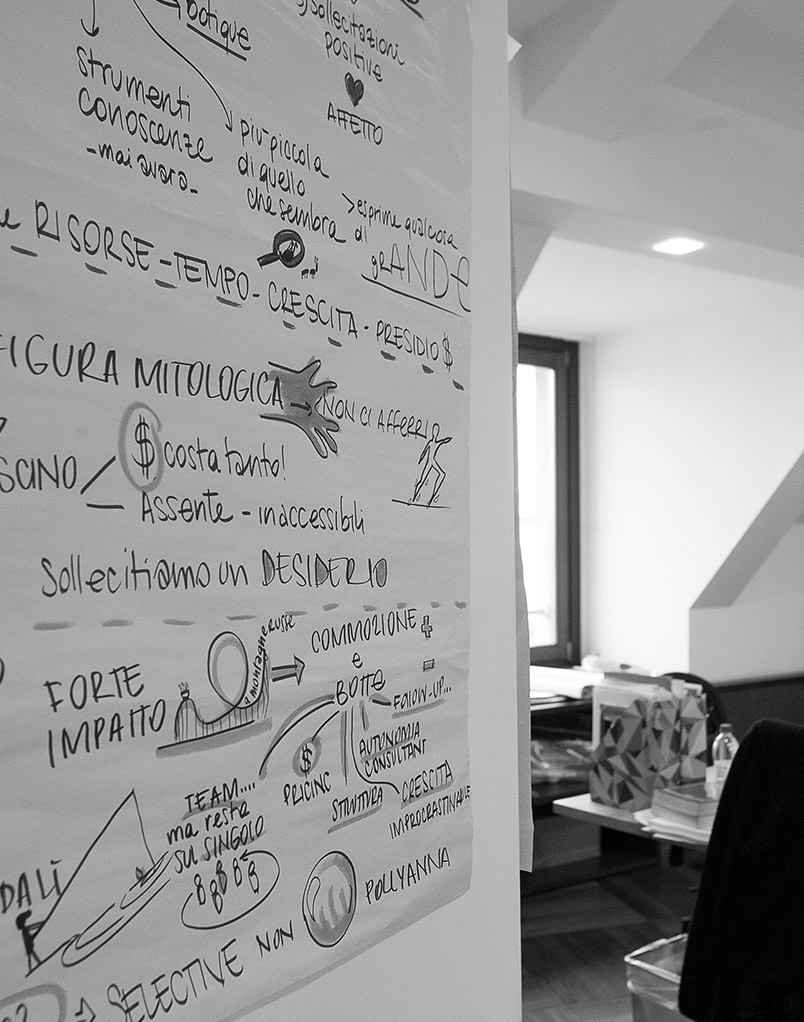 botique
sollecitazioni
positive
AFFETTO
strumenti
conoscenze
-mai avara-
più piccola
di quello
che sembra
> esprime qualcosa
di grANDe
RISORSE - TEMPO - CRESCITA - PRESIDIO $
FIGURA MITOLOGICA → NON CI AFFERRI
SCINO
$ costa tanto!
Assente - inaccessibili
Sollecitiamo un DESIDERIO
FORTE
IMPATTO
montagne RUSSE
COMMOZIONE +
e
BOTTE -
FOllOW-UP...
$
PRICINC
STRUTTURA
AUTONOMIA
CONSULTANT
CRESCITA
IMPROCRASTINABILE
TEAM....
ma resta
SUL SINGOLO
DALÌ
⇒ SELECTIVE NON POLLYANNA